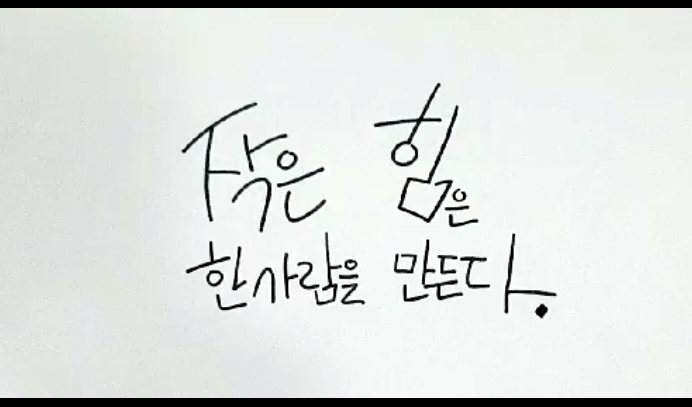 작은 힘은
한사람을 만든다.